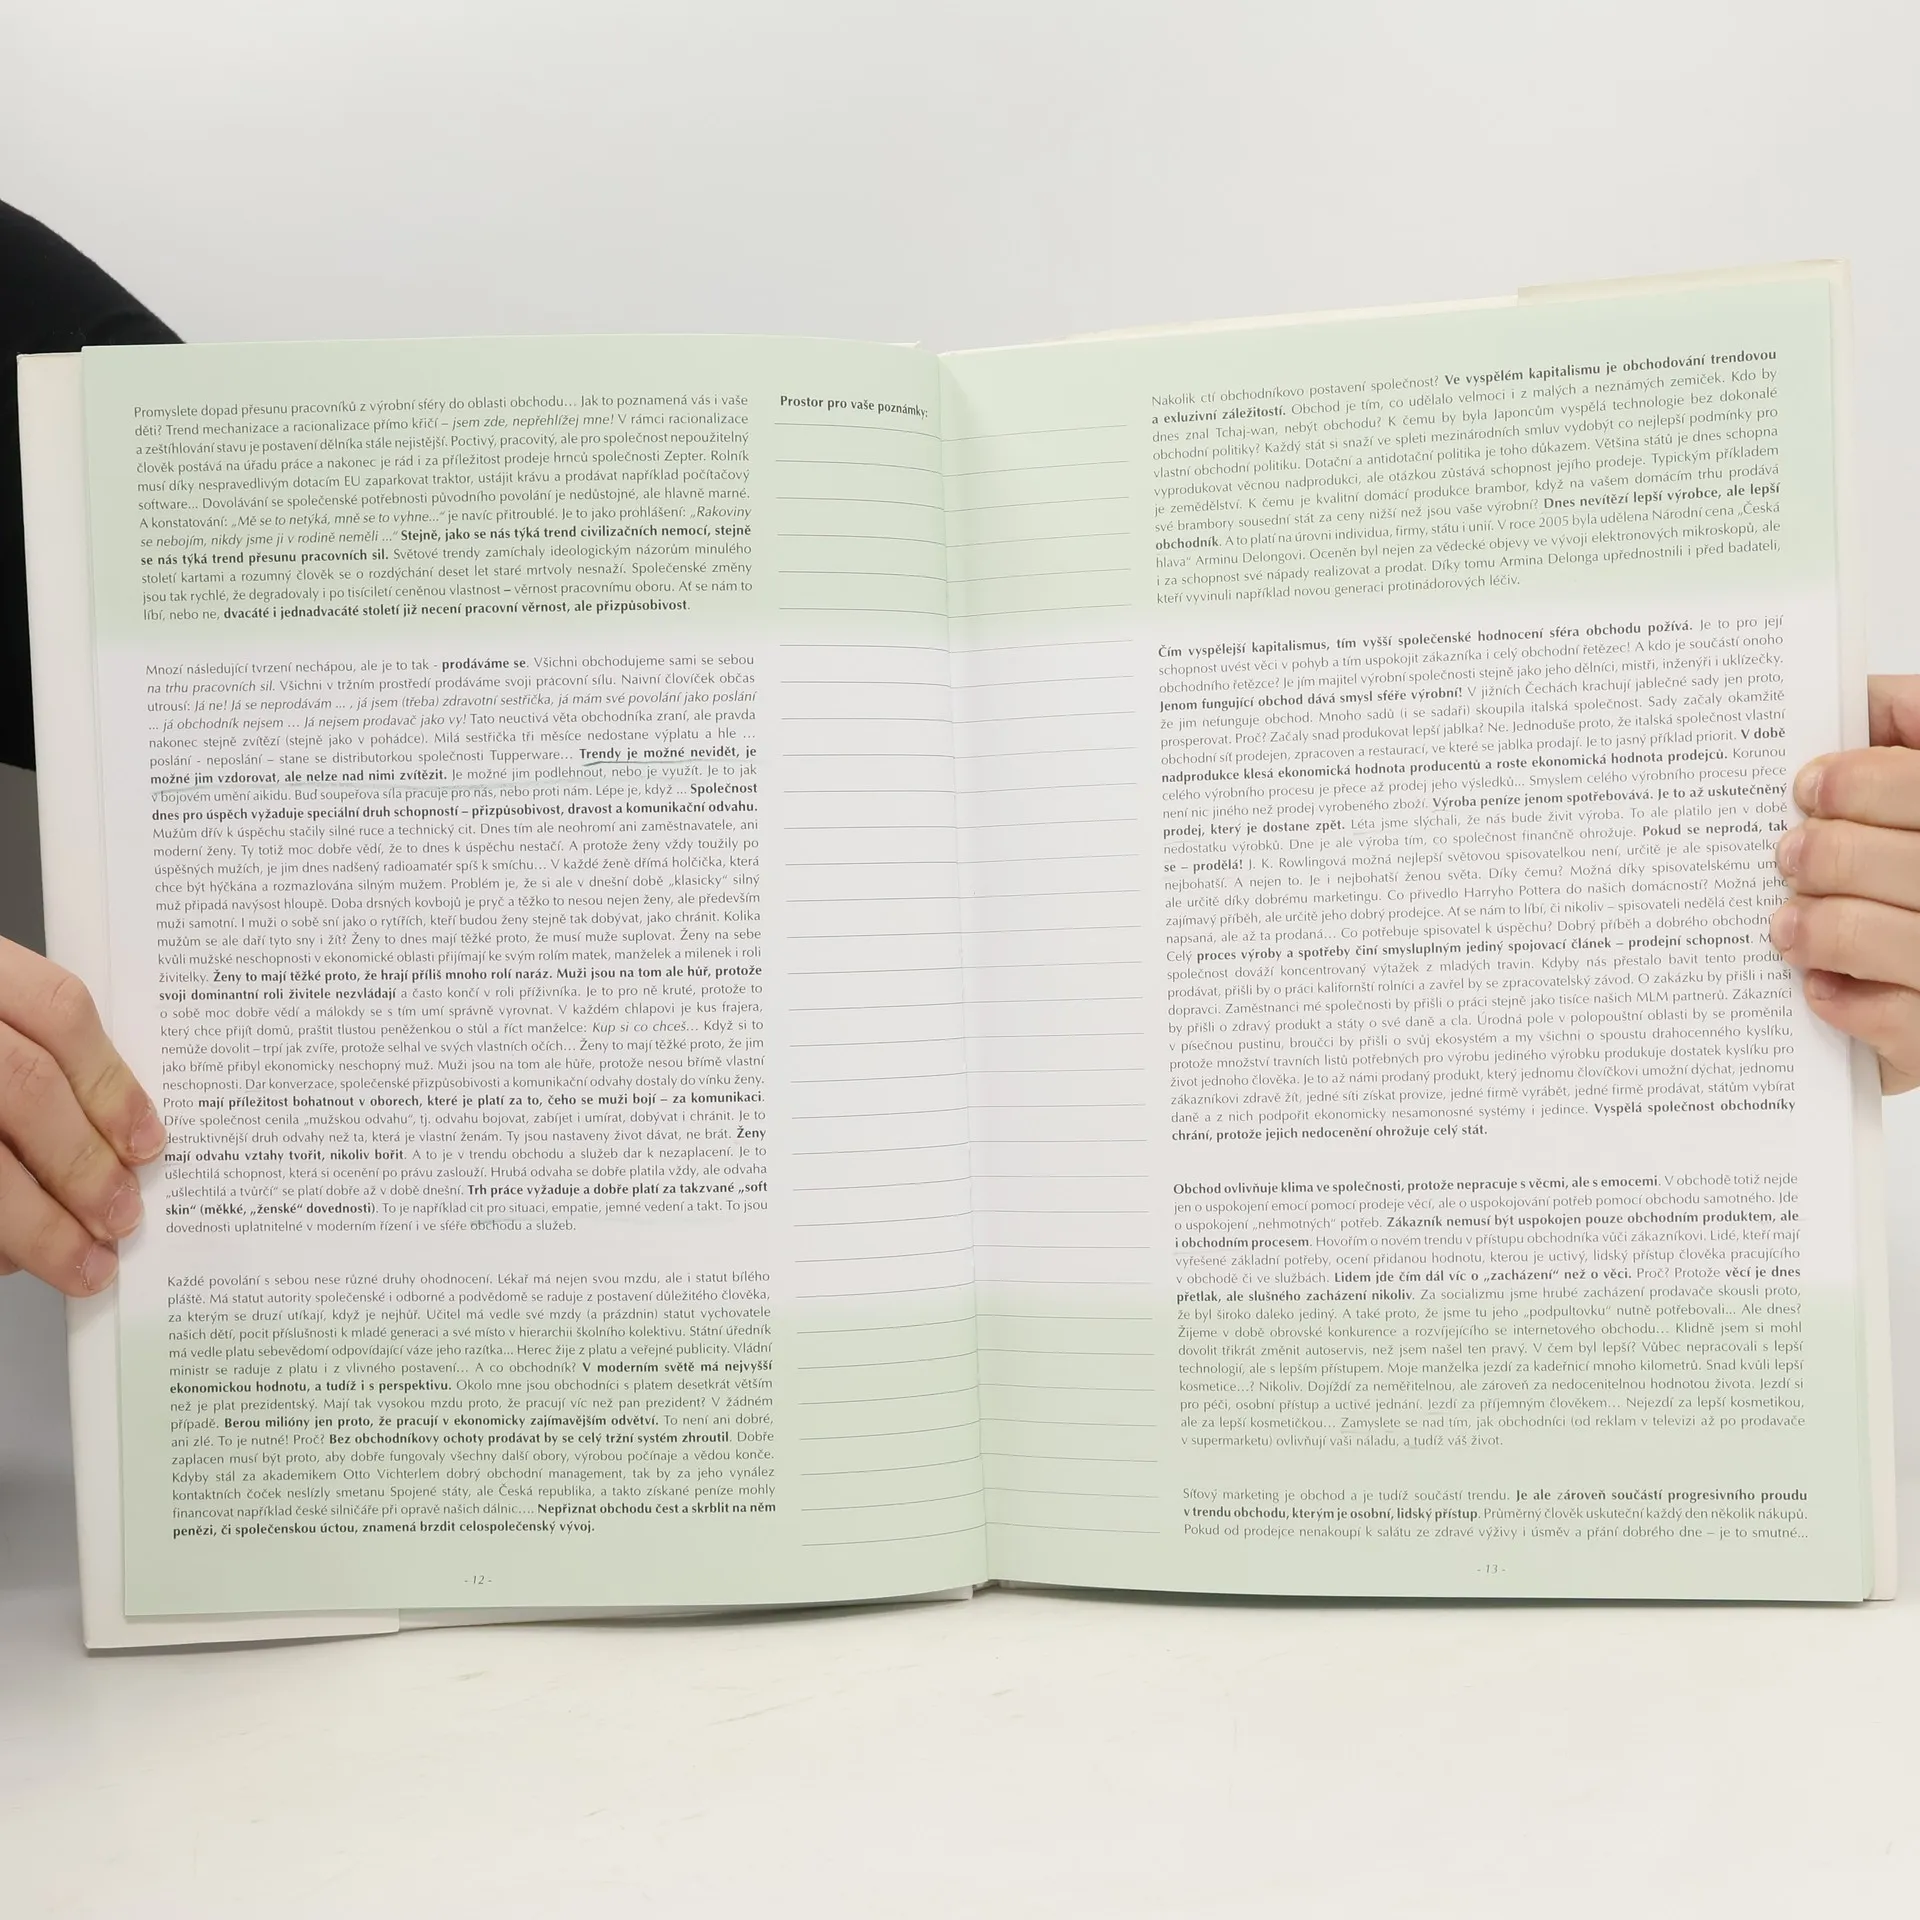 Promyslete dopad přesunu pracovníků z výrobní sféry do oblasti obchodu… Jak to poznamená vás i vaše
děti? Trend mechanizace a racionalizace přímo křičí – jsem zde, nepřehlížej mne! V rámci racionalizace
a zeštíhlování stavu je postavení dělníka stále nejistější. Poctivý, pracovitý, ale pro společnost nepoužitelný
člověk postává na úřadu práce a nakonec je rád i za příležitost prodeje hrnců společnosti Zepter. Rolník
musí díky nespravedlivým dotacím EU zaparkovat traktor, ustájit krávu a prodávat například počítačový
software… Dovolávání se společenské potřebnosti původního povolání je nedůstojné, ale hlavně marné.
A konstatování: „Mě se to netýká, mně se to vyhne…“ je navíc přitroublé. Je to jako prohlášení: „Rakoviny
se nebojím, nikdy jsme ji v rodině neměli …“ Stejně, jako se nás týká trend civilizačních nemocí, stejně
se nás týká trend přesunu pracovních sil. Světové trendy zamíchaly ideologickým názorům minulého
století kartami a rozumný člověk se o rozdýchání deset let staré mrtvoly nesnaží. Společenské změny
jsou tak rychlé, že degradovaly i po tisíciletí ceněnou vlastnost – věrnost pracovnímu oboru. Ať se nám to
líbí, nebo ne, dvacáté i jednadvacáté století již necení pracovní věrnost, ale přizpůsobivost.
Mnozí následující tvrzení nechápou, ale je to tak - prodáváme se. Všichni obchodujeme sami se sebou
na trhu pracovních sil. Všichni v tržním prostředí prodáváme svoji pracovní sílu. Naivní človíček občas
utrousí: Já ne! Já se neprodávám … , já jsem (třeba) zdravotní sestřička, já mám své povolání jako poslání
… já obchodník nejsem … Já nejsem prodavač jako vy! Tato neuctivá věta obchodníka zraní, ale pravda
nakonec stejně zvítězí (stejně jako v pohádce). Milá sestřička tři měsíce nedostane výplatu a hle …
poslání - neposlání – stane se distributorkou společnosti Tupperware… Trendy je možné nevidět, je
možné jim vzdorovat, ale nelze nad nimi zvítězit. Je možné jim podlehnout, nebo je využít. Je to jak
v bojovém umění aikidu. Buď soupeřova síla pracuje pro nás, nebo proti nám. Lépe je, když … Společnost
dnes pro úspěch vyžaduje speciální druh schopností – přizpůsobivost, dravost a komunikační odvahu.
Mužům dřív k úspěchu stačily silné ruce a technický cit. Dnes tím ale neohromí ani zaměstnavatele, ani
moderní ženy. Ty totiž moc dobře vědí, že to dnes k úspěchu nestačí. A protože ženy vždy toužily po
úspěšných mužích, je jim dnes nadšený radioamatér spíš k smíchu… V každé ženě dřímá holčička, která
chce být hýčkána a rozmazlována silným mužem. Problém je, že si ale v dnešní době „klasicky“ silný
muž připadá navýsost hloupě. Doba drsných kovbojů je pryč a těžko to nesou nejen ženy, ale především
muži samotní. I muži o sobě sní jako o rytířích, kteří budou ženy stejně tak dobývat, jako chránit. Kolika
mužům se ale daří tyto sny i žít? Ženy to dnes mají těžké proto, že musí muže suplovat. Ženy na sebe
kvůli mužské neschopnosti v ekonomické oblasti přijímají ke svým rolím matek, manželek a milenek i roli
živitelky. Ženy to mají těžké proto, že hrají příliš mnoho rolí naráz. Muži jsou na tom ale hůř, protože
svoji dominantní roli živitele nezvládají a často končí v roli příživníka. Je to pro ně kruté, protože to
o sobě moc dobře vědí a málokdy se s tím umí správně vyrovnat. V každém chlapovi je kus frajera,
který chce přijít domů, praštit tlustou peněženkou o stůl a říct manželce: Kup si co chceš… Když si to
nemůže dovolit – trpí jak zvíře, protože selhal ve svých vlastních očích… Ženy to mají těžké proto, že jim
jako břímě přibyl ekonomicky neschopný muž. Muži jsou na tom ale hůře, protože nesou břímě vlastní
neschopnosti. Dar konverzace, společenské přizpůsobivosti a komunikační odvahy dostaly do vínku ženy.
Proto mají příležitost bohatnout v oborech, které je platí za to, čeho se muži bojí – za komunikaci.
Dříve společnost cenila „mužskou odvahu“, tj. odvahu bojovat, zabíjet i umírat, dobývat i chránit. Je to
destruktivnější druh odvahy než ta, která je vlastní ženám. Ty jsou nastaveny život dávat, ne brát. Ženy
mají odvahu vztahy tvořit, nikoliv bořit. A to je v trendu obchodu a služeb dar k nezaplacení. Je to
ušlechtilá schopnost, která si ocenění po právu zaslouží. Hrubá odvaha se dobře platila vždy, ale odvaha
„ušlechtilá a tvůrčí“ se platí dobře až v době dnešní. Trh práce vyžaduje a dobře platí za takzvané „soft
skin“ (měkké, „ženské“ dovednosti). To je například cit pro situaci, empatie, jemné vedení a takt. To jsou
dovednosti uplatnitelné v moderním řízení i ve sféře obchodu a služeb.
Každé povolání s sebou nese různé druhy ohodnocení. Lékař má nejen svou mzdu, ale i statut bílého
pláště. Má statut autority společenské i odborné a podvědomě se raduje z postavení důležitého člověka,
za kterým se druzí utíkají, když je nejhůř. Učitel má vedle své mzdy (a prázdnin) statut vychovatele
našich dětí, pocit příslušnosti k mladé generaci a své místo v hierarchii školního kolektivu. Státní úředník
má vedle platu sebevědomí odpovídající váze jeho razítka… Herec žije z platu a veřejné publicity. Vládní
ministr se raduje z platu i z vlivného postavení… A co obchodník? V moderním světě má nejvyšší
ekonomickou hodnotu, a tudíž i s perspektivu. Okolo mne jsou obchodníci s platem desetkrát větším
než je plat prezidentský. Mají tak vysokou mzdu proto, že pracují víc než pan prezident? V žádném
případě. Berou milióny jen proto, že pracují v ekonomicky zajímavějším odvětví. To není ani dobré,
ani zlé. To je nutné! Proč? Bez obchodníkovy ochoty prodávat by se celý tržní systém zhroutil. Dobře
zaplacen musí být proto, aby dobře fungovaly všechny další obory, výrobou počínaje a vědou konče.
Kdyby stál za akademikem Otto Vichterlem dobrý obchodní management, tak by za jeho vynález
kontaktních čoček neslízly smetanu Spojené státy, ale Česká republika, a takto získané peníze mohly
financovat například české silničáře při opravě našich dálnic…. Nepřiznat obchodu čest a skrblit na něm
penězi, či společenskou úctou, znamená brzdit celospolečenský vývoj.
- 12 -
Prostor pro vaše poznámky:
Nakolik ctí obchodníkovo postavení společnost? Ve vyspělém kapitalismu je obchodování trendovou
a exluzivní záležitostí. Obchod je tím, co udělalo velmoci i z malých a neznámých zemiček. Kdo by
dnes znal Tchaj-wan, nebýt obchodu? K čemu by byla Japoncům vyspělá technologie bez dokonalé
obchodní politiky? Každý stát si snaží ve spleti mezinárodních smluv vydobýt co nejlepší podmínky pro
vlastní obchodní politiku. Dotační a antidotační politika je toho důkazem. Většina států je dnes schopna
vyprodukovat věcnou nadprodukci, ale otázkou zůstává schopnost jejího prodeje. Typickým příkladem
je zemědělství. K čemu je kvalitní domácí produkce brambor, když na vašem domácím trhu prodává
své brambory sousední stát za ceny nižší než jsou vaše výrobní? Dnes nevítězí lepší výrobce, ale lepší
obchodník. A to platí na úrovni individua, firmy, státu i unií. V roce 2005 byla udělena Národní cena „Česká
hlava“ Arminu Delongovi. Oceněn byl nejen za vědecké objevy ve vývoji elektronových mikroskopů, ale
i za schopnost své nápady realizovat a prodat. Díky tomu Armina Delonga upřednostnili i před badateli,
kteří vyvinuli například novou generaci protinádorových léčiv.
Čím vyspělejší kapitalismus, tím vyšší společenské hodnocení sféra obchodu požívá. Je to pro její
schopnost uvést věci v pohyb a tím uspokojit zákazníka i celý obchodní řetězec! A kdo je součástí onoho
obchodního řetězce? Je jím majitel výrobní společnosti stejně jako jeho dělníci, mistři, inženýři i uklízečky.
Jenom fungující obchod dává smysl sféře výrobní! V jižních Čechách krachují jablečné sady jen proto,
že jim nefunguje obchod. Mnoho sadů (i se sadaři) skoupila italská společnost. Sady začaly okamžitě
prosperovat. Proč? Začaly snad produkovat lepší jablka? Ne. Jednoduše proto, že italská společnost vlastní
obchodní síť prodejen, zpracoven a restaurací, ve které se jablka prodají. Je to jasný příklad priorit. V době
nadprodukce klesá ekonomická hodnota producentů a roste ekonomická hodnota prodejců. Korunou
celého výrobního procesu je přece až prodej jeho výsledků… Smyslem celého výrobního procesu přece
není nic jiného než prodej vyrobeného zboží. Výroba peníze jenom spotřebovává. Je to až uskutečněný
prodej, který je dostane zpět. Léta jsme slýchali, že nás bude živit výroba. To ale platilo jen v době
nedostatku výrobků. Dne je ale výroba tím, co společnost finančně ohrožuje. Pokud se neprodá, tak
se – prodělá! J. K. Rowlingová možná nejlepší světovou spisovatelkou není, určitě je ale
nejbohatší. A nejen to. Je i nejbohatší ženou světa. Díky čemu? Možná díky spisovatelskému
ale určitě díky dobrému marketingu. Co přivedlo Harryho Pottera do našich domácností? Možná
zajímavý příběh, ale určitě jeho dobrý prodejce. Ať se nám to líbí, či nikoliv – spisovateli nedělá čest kniha
napsaná, ale až ta prodaná… Co potřebuje spisovatel k úspěchu? Dobrý příběh a dobrého
Celý proces výroby a spotřeby činí smysluplným jediný spojovací článek – prodejní schopnost.
společnost dováží koncentrovaný výtažek z mladých travin. Kdyby nás přestalo bavit tento
prodávat, přišli by o práci kalifornští rolníci a zavřel by se zpracovatelský závod. O zakázku by přišli i naši
dopravci. Zaměstnanci mé společnosti by přišli o práci stejně jako tisíce našich MLM partnerů. Zákazníci
by přišli o zdravý produkt a státy o své daně a cla. Úrodná pole v polopouštní oblasti by se proměnila
v písečnou pustinu, broučci by přišli o svůj ekosystém a my všichni o spoustu drahocenného kyslíku,
protože množství travních listů potřebných pro výrobu jediného výrobku produkuje dostatek kyslíku pro
život jednoho člověka. Je to až námi prodaný produkt, který jednomu človíčkovi umožní dýchat, jednomu
zákazníkovi zdravě žít, jedné síti získat provize, jedné firmě vyrábět, jedné firmě prodávat, státům vybírat
daně a z nich podpořit ekonomicky nesamonosné systémy i jedince. Vyspělá společnost obchodníky
chrání, protože jejich nedocenění ohrožuje celý stát.
Obchod ovlivňuje klima ve společnosti, protože nepracuje s věcmi, ale s emocemi. V obchodě totiž nejde
jen o uspokojení emocí pomocí prodeje věcí, ale o uspokojování potřeb pomocí obchodu samotného. Jde
o uspokojení „nehmotných“ potřeb. Zákazník nemusí být uspokojen pouze obchodním produktem, ale
i obchodním procesem. Hovořím o novém trendu v přístupu obchodníka vůči zákazníkovi. Lidé, kteří mají
vyřešené základní potřeby, ocení přidanou hodnotu, kterou je uctivý, lidský přístup člověka pracujícího
v obchodě či ve službách. Lidem jde čím dál víc o „zacházení“ než o věci. Proč? Protože věcí je dnes
přetlak, ale slušného zacházení nikoliv. Za socializmu jsme hrubé zacházení prodavače skousli proto,
že byl široko daleko jediný. A také proto, že jsme tu jeho „podpultovku“ nutně potřebovali… Ale dnes?
Žijeme v době obrovské konkurence a rozvíjejícího se internetového obchodu… Klidně jsem si mohl
dovolit třikrát změnit autoservis, než jsem našel ten pravý. V čem byl lepší? Vůbec nepracovali s lepší
technologií, ale s lepším přístupem. Moje manželka jezdí za kadeřnicí mnoho kilometrů. Snad kvůli lepší
kosmetice…? Nikoliv. Dojíždí za neměřitelnou, ale zároveň za nedocenitelnou hodnotou života. Jezdí si
pro péči, osobní přístup a uctivé jednání. Jezdí za příjemným člověkem… Nejezdí za lepší kosmetikou,
ale za lepší kosmetičkou… Zamyslete se nad tím, jak obchodníci (od reklam v televizi až po prodavače
v supermarketu) ovlivňují vaši náladu, a tudíž váš život.
Síťový marketing je obchod a je tudíž součástí trendu. Je ale zároveň součástí progresivního proudu
v trendu obchodu, kterým je osobní, lidský přístup. Průměrný člověk uskuteční každý den několik nákupů.
Pokud od prodejce nenakoupí k salátu ze zdravé výživy i úsměv a přání dobrého dne – je to smutné…
- 13 -